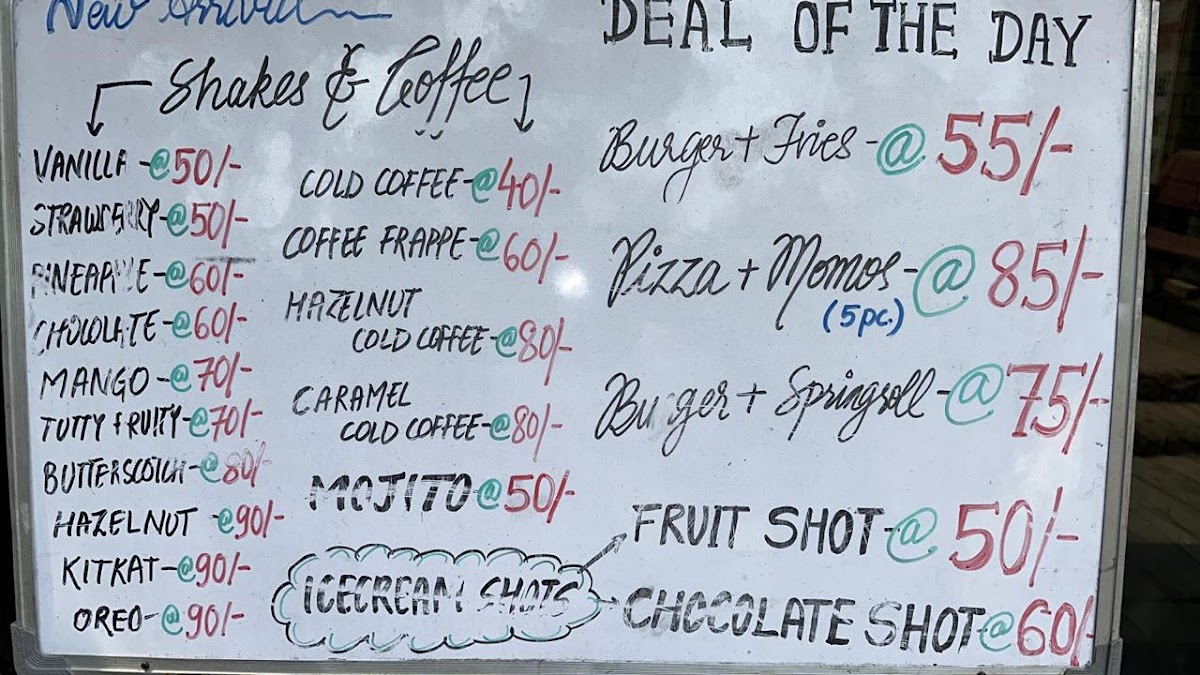 New Arrival
Shakes & Coffee
VANILLA -@50/-
STRAWBERRY-@50/-
PINEAPPLE -@60/-
CHOCOLATE-@60/-
MANGO-@70/-
TUTTY FRUITY-@70/-
BUTTERSCOTCH-@80/-
HAZELNUT @90/-
KITKAT-@90/-
OREO-@90/-
COLD COFFEE-@40/-
COFFEE FRAPPE-@60/-
HAZELNUT
COLD COFFEE-@80/-
CARAMEL
COLD COFFEE-@80/-
MOJITO@50/-
ICECREAM SHOTS
DEAL OF THE DAY
Burger + Fries -@ 55/-
Pizza + Momos-@ 85/-
(5pc.)
Burger + Springroll-@75/-
FRUIT SHOT-@50/-
CHOCOLATE SHOT-@60/-